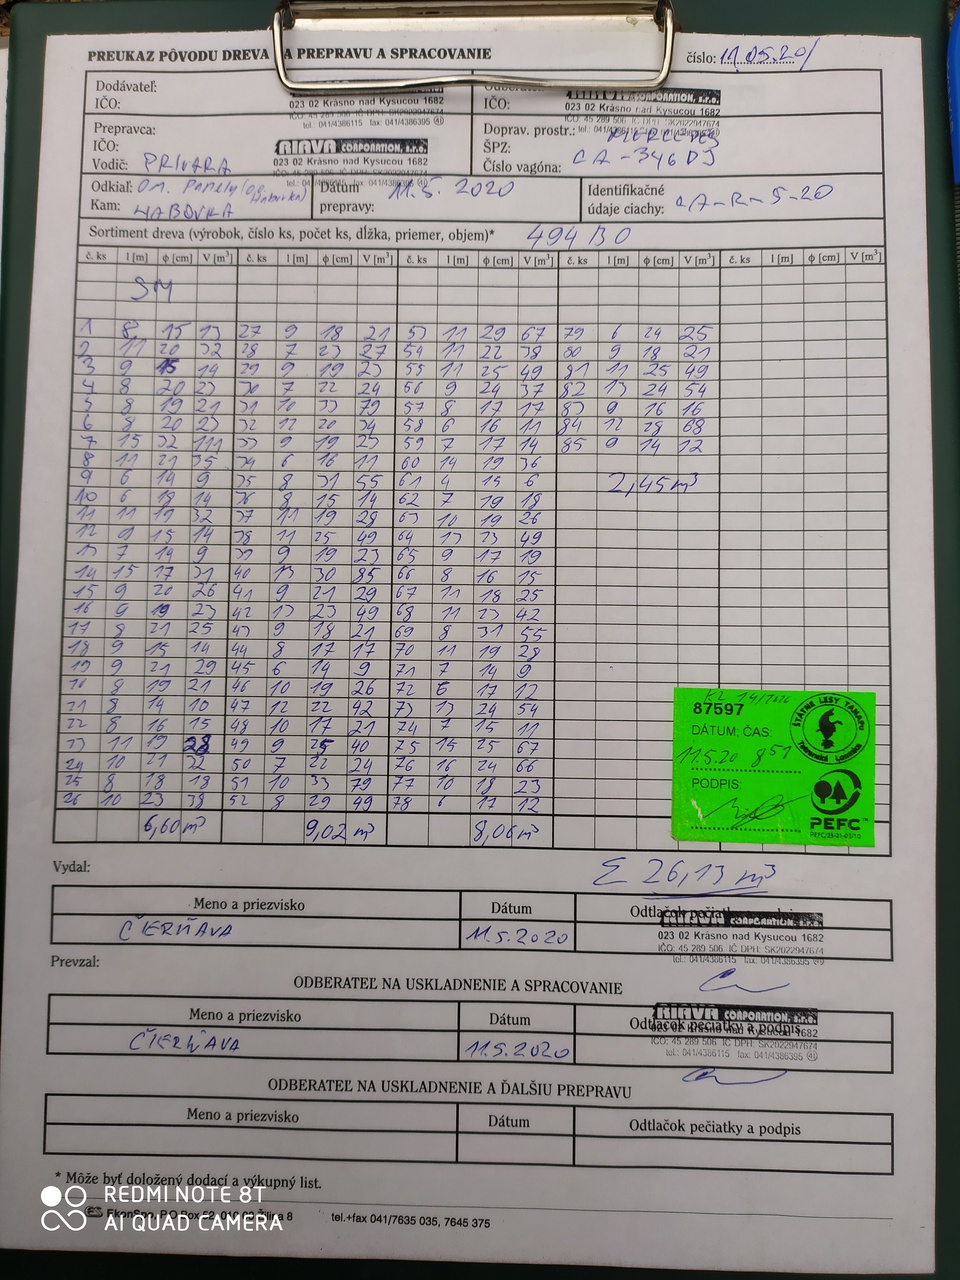 PREUKAZ PÔVODU DREVA NA PREPRAVU A SPRACOVANIE
číslo: 11.05.20/
Dodávateľ:
IČO:
CORPORATION, s.r.o.
023 02 Krásno nad Kysucou 1682
IČO: 45 289 506 IČ DPH: SK2022947674
tel.: 041/4386115 fax: 041/4386395
IČO:
CORPORATION, s.r.o.
023 02 Krásno nad Kysucou 1682
IČO: 45 289 506 IČ DPH: SK2022947674
Prepravca:
IČO:
Vodič: PRIVARA
RIAVA CORPORATION, s.r.o.
023 02 Krásno nad Kysucou 1682
Doprav. prostr.: MERCEDES
ŠPZ:
Číslo vagóna: CA-346DJ
Odkiaľ:
Kam: HABOVKA
Dátum
prepravy: 11.5.2020
Identifikačné
údaje ciachy: CA-R-5-20
Sortiment dreva (výrobok, číslo ks, počet ks, dĺžka, priemer, objem)* 494 BO
č. ks l [m] ϕ [cm] V [m³] č. ks l [m] ϕ [cm] V [m³] č. ks l [m] ϕ [cm] V [m³] č. ks l [m] ϕ [cm] V [m³] č. ks l [m] ϕ [cm] V [m³]
SM
1 8 15 13 27 9 18 21 53 11 29 67 79 6 24 25
2 11 20 32 28 7 23 27 54 11 22 38 80 9 18 21
3 9 15 14 29 9 19 23 55 11 25 49 81 11 25 49
4 8 20 23 30 7 22 24 56 9 24 37 82 13 24 54
5 8 19 21 31 10 33 79 57 8 17 17 83 9 16 16
6 8 20 23 32 12 20 34 58 6 16 11 84 12 28 68
7 15 32 111 33 9 19 23 59 7 17 14 85 9 14 12
8 11 21 35 34 6 16 11 60 14 19 36
9 6 14 9 35 8 31 55 61 4 15 6 2,45m³
10 6 18 14 36 8 15 14 62 7 19 18
11 11 19 32 37 11 19 28 63 10 19 26
12 9 15 14 38 11 25 49 64 13 23 49
13 7 14 9 39 9 19 23 65 9 17 19
14 15 17 31 40 13 30 85 66 8 16 15
15 9 20 26 41 9 21 29 67 11 18 25
16 9 19 23 42 13 23 49 68 11 23 42
17 8 21 25 43 9 18 21 69 8 31 55
18 9 15 14 44 8 17 17 70 11 19 28
19 9 21 29 45 6 14 9 71 7 14 9
20 8 19 21 46 10 19 26 72 6 17 12
21 8 14 10 47 12 22 42 73 13 24 54
22 8 16 15 48 10 17 21 74 7 15 11
23 11 19 28 49 9 25 40 75 15 25 67
24 10 21 32 50 7 22 24 76 16 24 66
25 8 18 18 51 10 33 79 77 10 18 23
26 10 23 38 52 8 29 49 78 6 17 12
6,60m³ 9,02m³ 8,06m³
87597
DÁTUM, ČAS:
11.5.20 8 51
PODPIS:
ŠTÁTNE LESY TANAPU
Tatranská Lomnica
PEFC™
Σ 26,13 m³
Vydal:
Meno a priezvisko Dátum Odtlačok pečiatky a podpis
ČIERŇAVA 11.5.2020
RIAVA CORPORATION, s.r.o.
023 02 Krásno nad Kysucou 1682
IČO: 45 289 506 IČ DPH: SK2022947674
tel.: 041/4386115 fax: 041/4386395
Prevzal:
ODBERATEĽ NA USKLADNENIE A SPRACOVANIE
Meno a priezvisko Dátum Odtlačok pečiatky a podpis
ČIERŇAVA 11.5.2020
RIAVA CORPORATION, s.r.o.
023 02 Krásno nad Kysucou 1682
IČO: 45 289 506 IČ DPH: SK2022947674
tel.: 041/4386115 fax: 041/4386395
ODBERATEĽ NA USKLADNENIE A ĎALŠIU PREPRAVU
Meno a priezvisko Dátum Odtlačok pečiatky a podpis
* Môže byť doložený dodací a výkupný list.
REDMI NOTE 8T
AI QUAD CAMERA
tel.+fax 041/7635 035, 7645 375